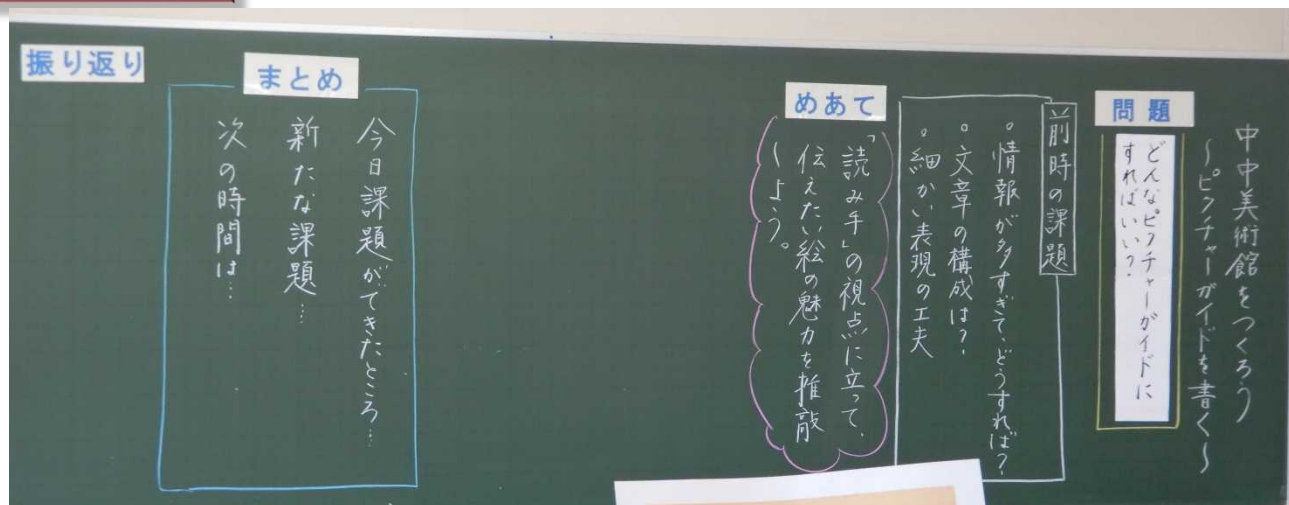 中中美術館をつくろう
〜ピクチャーガイドを書く〜
問題
どんなピクチャーガイドに
すればいい？
前時の課題
。情報が多すぎて、どうすれば？
。文章の構成は？
。細かい表現の工夫
めあて
「読み手」の視点に立って、
伝えたい絵の魅力を推敲
しよう。
まとめ
今日課題ができたところ…
新たな課題…
次の時間は…
振り返り